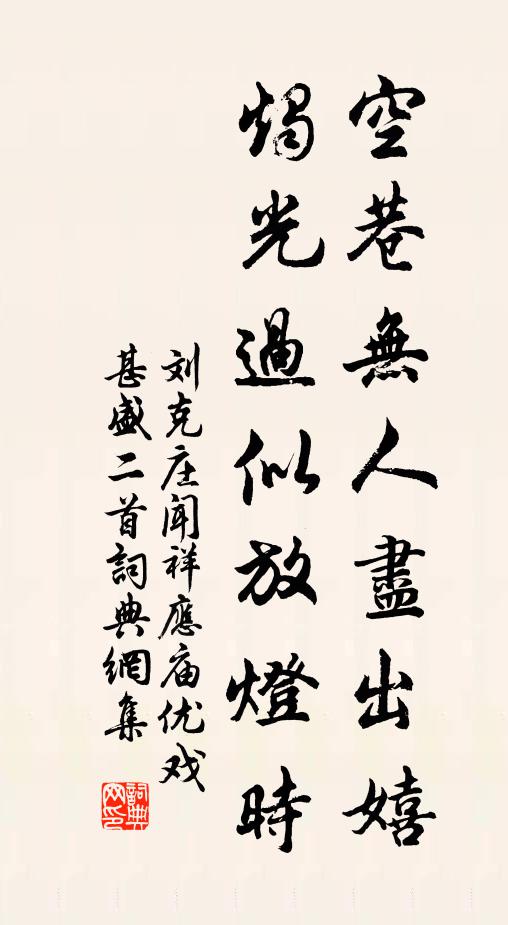 空巷無人盡出嬉
燭光過似放燈時
刘克庄闻祥應庙优戏
甚盛二首詞典網集
詞典网印